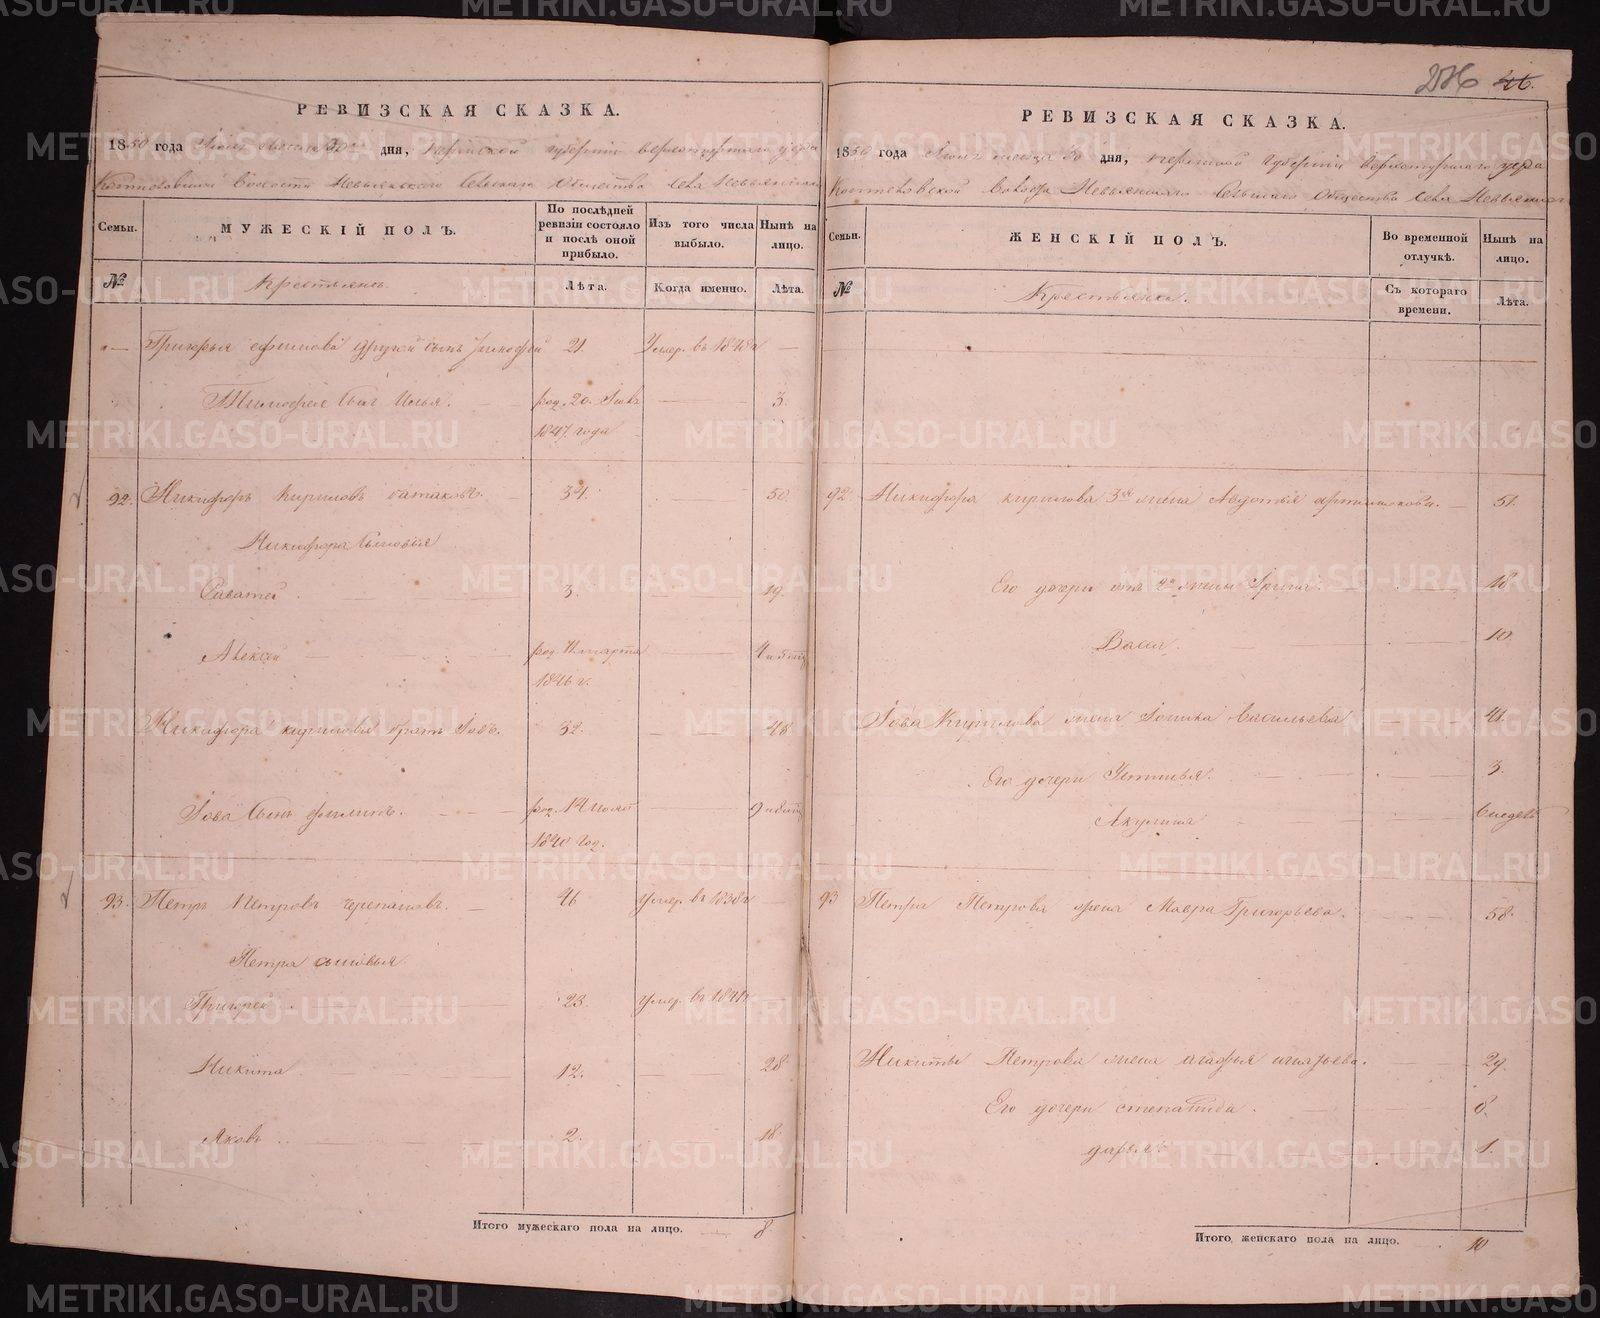 METRIKI.GASO-URAL.RU
206 46.
РЕВИЗСКАЯ СКАЗКА.
1850 года Июня месяца 30 дня, Пермской губернии Верхотурскаго уезда
Коптеловской Волости Невьянскаго Сельскаго Общества Села Невьянскаго
Семьи.
МУЖЕСКІЙ ПОЛЪ.
По послѣдней ревизіи состояло и послѣ оной прибыло.
Изъ того числа выбыло.
Нынѣ на лицо.
№
Крестьянъ.
Лѣта.
Когда именно.
Лѣта.
Григорья Ефимова другой сынъ Тимофей 21. Умер. въ 1848 г
Тимофея Сынъ Илья. род. 20. 3.
1847. года
92. Никифоръ Кириловъ 34. 50.
Никифора Сыновья
Саватей 3. 19.
Алексей род. марта 4
1846 г.
Никифора Кирилова братъ Іовъ. 32. 48
Іова Сынъ Филипъ. род. 14 9
1840 год.
93. Петръ Петровъ Черепановъ. 46 Умер. въ 1838 г
Петра сыновья
Григорей 23. Умер. въ 1841 г
Никита 12. 28
Яковъ 2. 18.
Итого мужескаго пола на лицо. 8
РЕВИЗСКАЯ СКАЗКА.
1850 года Июня месяца 30 дня, Пермской Губернии Верхотурскаго уезда
Коптеловской Волости Невьянскаго Сельскаго Общества Села Невьянскаго
Семьи.
ЖЕНСКІЙ ПОЛЪ.
Во временной отлучкѣ.
Нынѣ на лицо.
№
Крестьянка.
Съ котораго времени.
Лѣта.
92 Никифора Кирилова 3я жена Авдотья 51.
Его дочери отъ 2й жены 18
Васса. 10
Іова Кирилова жена Васильева 41.
Его дочери Устинья. 3.
Акулина
93 Петра Петрова жена Мавра Григорьева. 58.
Никиты Петрова жена Агафья Игнатьева. 29.
Его дочери Степанида. 8.
Дарья. 1.
Итого женскаго пола на лицо. 10